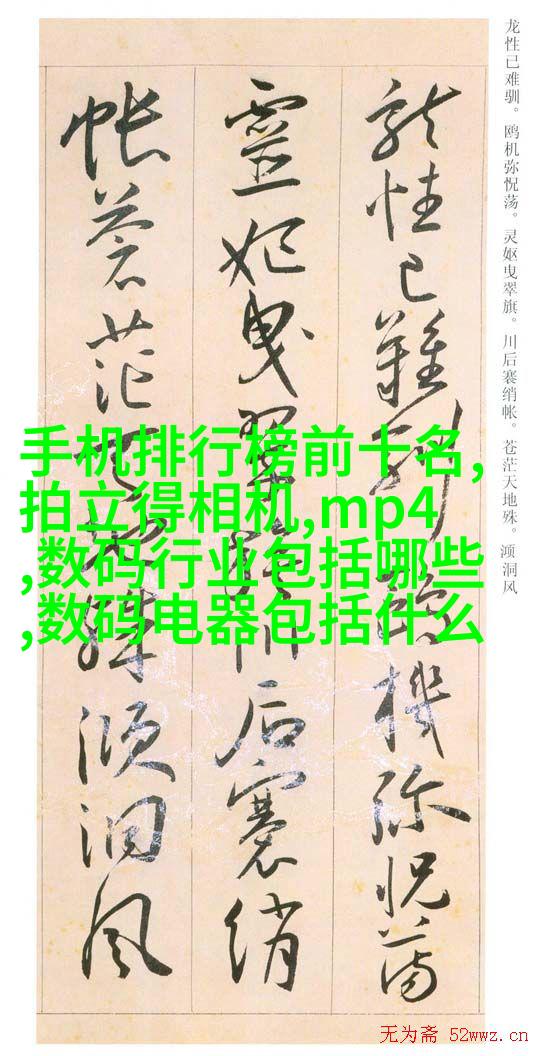 龙性已难驯。鸥机弥怳荡。灵妪曳翠旗。川后褰绡帐。苍茫天地殊。澒洞风
龍性已難馴鷗機弥怳蕩
靈妃曳翠旗川后褰綃
帳蒼茫天地殊澒洞風
手机排行榜前十名,
拍立得相机,mp4
,数码行业包括哪些
,数码电器包括什么
无为斋 52wwz.cn